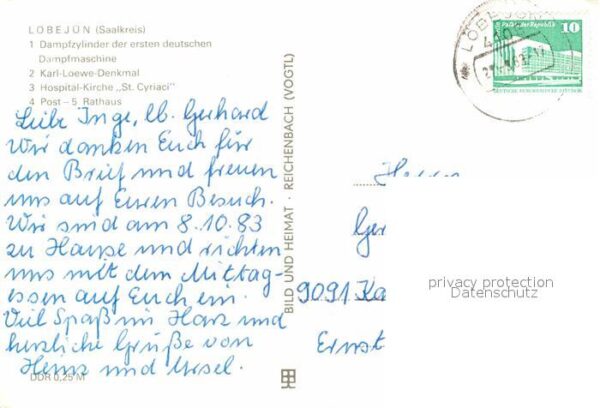 LÖBEJÜN (Saalkreis)
1 Dampfzylinder der ersten deutschen
Dampfmaschine
2 Karl-Loewe-Denkmal
3 Hospital-Kirche „St. Cyriaci"
4 Post – 5 Rathaus
Liebe Inge, lb. Gerhard
Wir danken Euch für
den Brief und freuen
uns auf Euren Besuch.
Wir sind am 8.10.83
zu Hause und richten
uns mit dem Mittag-
essen auf Euch ein.
Viel Spaß im Harz und
herzliche Grüße von
Heinz und Ursel.
DDR 0,25 M
BILD UND HEIMAT · REICHENBACH (VOGTL)
LÖBEJÜN
Palast der Republik
10
Herrn
Ger
9091 Ka
Ernst
privacy protection
Datenschutz